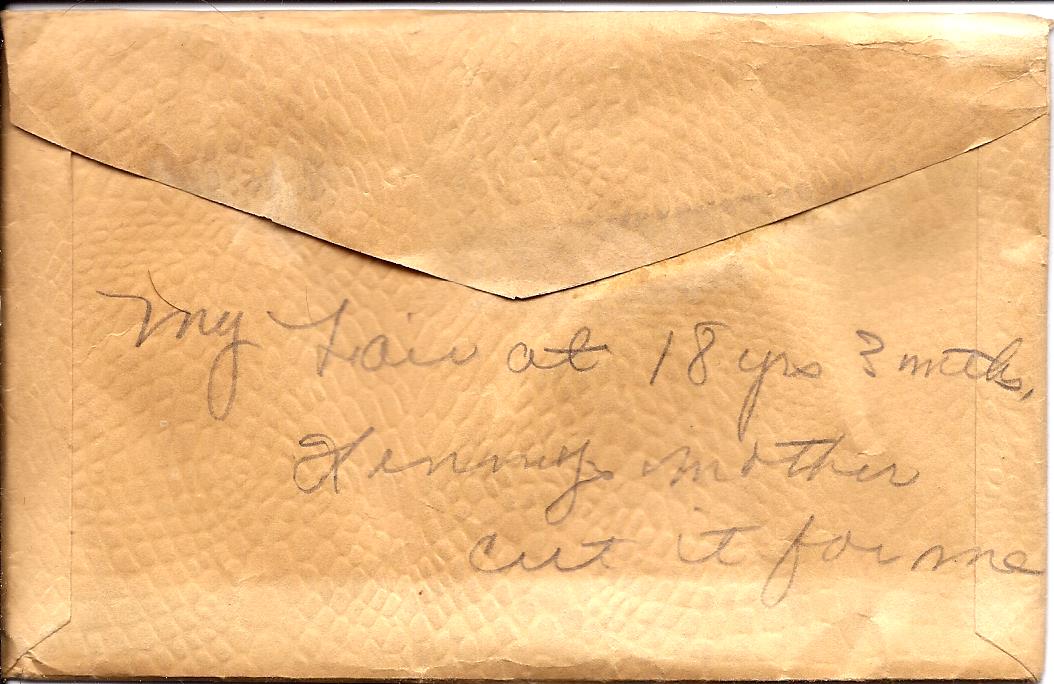 My hair at 18 yrs 3 mths.
mother
cut it for me